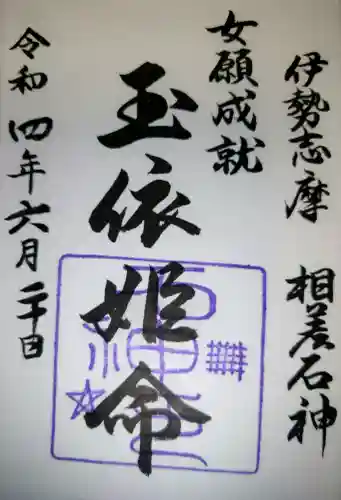 伊勢志摩 相差石神
女願成就
玉依姫命
令和四年六月二十日
石神さん